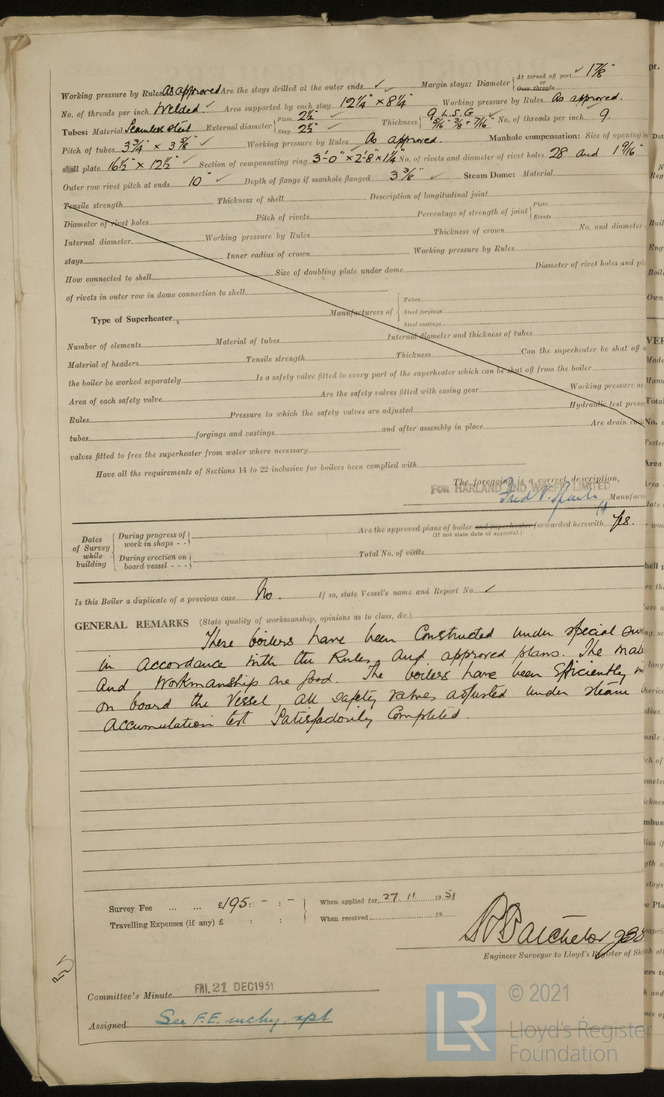 Working pressure by Rules As approved Are the stays drilled at the outer ends ✓ Margin stays: Diameter { At turned off part, ✓ 1 7/8" or Over threads
No. of threads per inch Welded ✓ Area supported by each stay 12 1/4" × 8 1/4" Working pressure by Rules As approved.
Tubes: Material Seamless steel External diameter { Plain 2 1/2" ✓ Stay 2 1/2" ✓ Thickness { 9 L.S.G. 5/16" 3/8" + 7/16" ✓ No. of threads per inch 9
Pitch of tubes 3 3/4" × 3 5/8" ✓ Working pressure by Rules As approved. Manhole compensation: Size of opening in
shell plate 16 1/2" × 12 1/2" ✓ Section of compensating ring 3'-0" × 2'-8" × 1 1/4" No. of rivets and diameter of rivet holes 28 and 1 9/16"
Outer row rivet pitch at ends 10" ✓ Depth of flange if manhole flanged 3 3/8" ✓ Steam Dome: Material
Tensile strength Thickness of shell Description of longitudinal joint
Diameter of rivet holes Pitch of rivets Percentage of strength of joint { Plate Rivets
Internal diameter Working pressure by Rules Thickness of crown No. and diameter
stays Inner radius of crown Working pressure by Rules
How connected to shell Size of doubling plate under dome Diameter of rivet holes and
of rivets in outer row in dome connection to shell
Type of Superheater Manufacturers of { Tubes Steel forgings Steel castings
Number of elements Material of tubes Internal diameter and thickness of tubes
Material of headers Tensile strength Thickness Can the superheater be shut off
the boiler be worked separately Is a safety valve fitted to every part of the superheater which can be shut off from the boiler
Area of each safety valve Are the safety valves fitted with easing gear Working pressure as
Rules Pressure to which the safety valves are adjusted Hydraulic test press
tubes forgings and castings and after assembly in place Are drain
valves fitted to free the superheater from water where necessary
Have all the requirements of Sections 14 to 22 inclusive for boilers been complied with
The foregoing is a correct description,
FOR HARLAND AND WOLFF LIMITED
Manufac
Dates of Survey while building { During progress of work in shops - - { During erection on board vessel - - - {
Are the approved plans of boiler and superheater forwarded herewith Yes.
(If not state date of approval.)
Total No. of visits
Is this Boiler a duplicate of a previous case No. If so, state Vessel's name and Report No. ✓
GENERAL REMARKS (State quality of workmanship, opinions as to class, &c.)
These boilers have been Constructed under special
in accordance with the Rules and approved plans. The
and workmanship are good. The boilers have been efficiently
on board the Vessel, all safety valves adjusted under steam
accumulation test satisfactorily completed.
Survey Fee ... ... £195 : - : - } When applied for 27. 11 1951
Travelling Expenses (if any) £ : : } When received 19
Engineer Surveyor to Lloyd's Register of
Committee's Minute FRI. 21 DEC 1951
Assigned See F.E. mchy. rpt
© 2021
LR
Lloyd's Register
Foundation